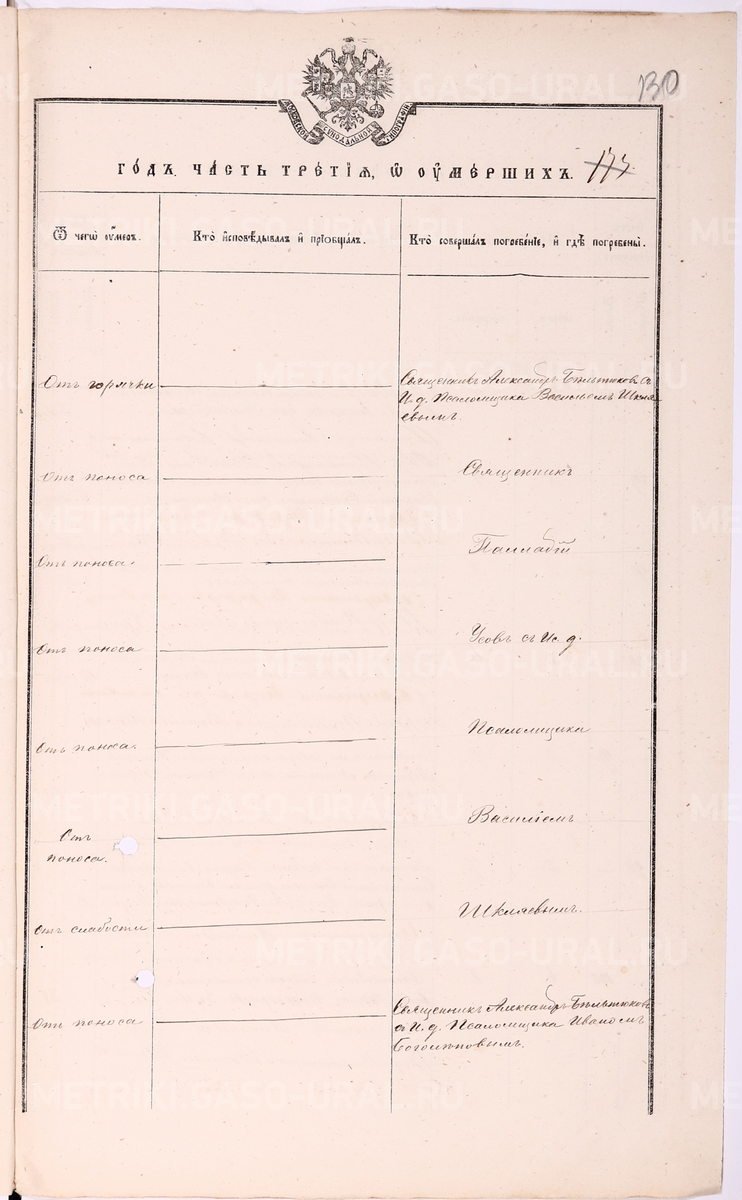 130
МОСКОВСКОЙ СѴНОДАЛЬНОЙ ТИПОГРАФІИ
ГО́ДЪ. ЧА́СТЬ ТРЕ́ТІѦ, Ѡ ОУМЕ́РШИХЪ. 173.
Ѿ чегѡ̀ оу́меръ.
Кто̀ и҆сповѣ́дывалъ и҆ прїѻбща́лъ.
Кто̀ соверша́лъ погребе́нїе, и҆ гдѣ̀ погребены̀.
Отъ горячки
Священникъ Александръ Бѣльтюковъ съ
И. д. Псаломщика Васильемъ Шкля-
евымъ.
Отъ поноса
Священникъ
Отъ поноса.
Палладій
Отъ поноса
Усовъ съ И. д.
Отъ поноса.
Псаломщика
Отъ
поноса.
Василіемъ
Отъ слабости
Шкляевымъ.
Отъ поноса
Священникъ Александръ Бѣльтюковъ
съ И. д. Псаломщика Иваномъ
METRIKI.GASO-URAL.RU